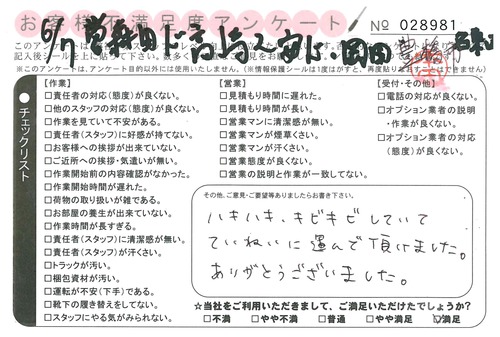 お客様不満足度アンケート
№ 028981
※このアンケートは、アンケート目的以外には使用いたしません。(※情報保護シールは1度はがすと、再度貼り
チェックリスト
【作業】
□責任者の対応(態度)が良くない。
□他のスタッフの対応(態度)が良くない。
□作業を見ていて不安がある。
□責任者(スタッフ)に好感が持てない。
□お客様への挨拶が出来ていない。
□ご近所への挨拶・気遣いが無い。
□作業開始前の内容確認がなかった。
□作業開始時間が遅れた。
□荷物の取り扱いが雑である。
□お部屋の養生が出来ていない。
□作業時間が長すぎる。
□責任者(スタッフ)に清潔感が無い。
□責任者(スタッフ)が汗くさい。
□トラックが汚い。
□梱包資材が汚い。
□運転が不安(下手)である。
□靴下の履き替えをしてない。
□スタッフにやる気がみられない。
【営業】
□見積もり時間に遅れた。
□見積もり時間が長い。
□営業マンに清潔感が無い。
□営業マンが煙草くさい。
□営業マンが汗くさい。
□営業態度が良くない。
□営業の説明と作業が一致してない。
【受付・その他】
□電話の対応が良くない。
□オプション業者の説明
・作業が良くない。
□オプション業者の対応
(態度)が良くない。
その他、ご意見・ご要望等ありましたらお書き下さい。
ハキハキ、キビキビしていて
ていねいに運んで頂けました。
ありがとうございました。
☆当社をご利用いただきまして、ご満足いただけたでしょうか?
□不満 □やや不満 □普通 □やや満足 ☑満足